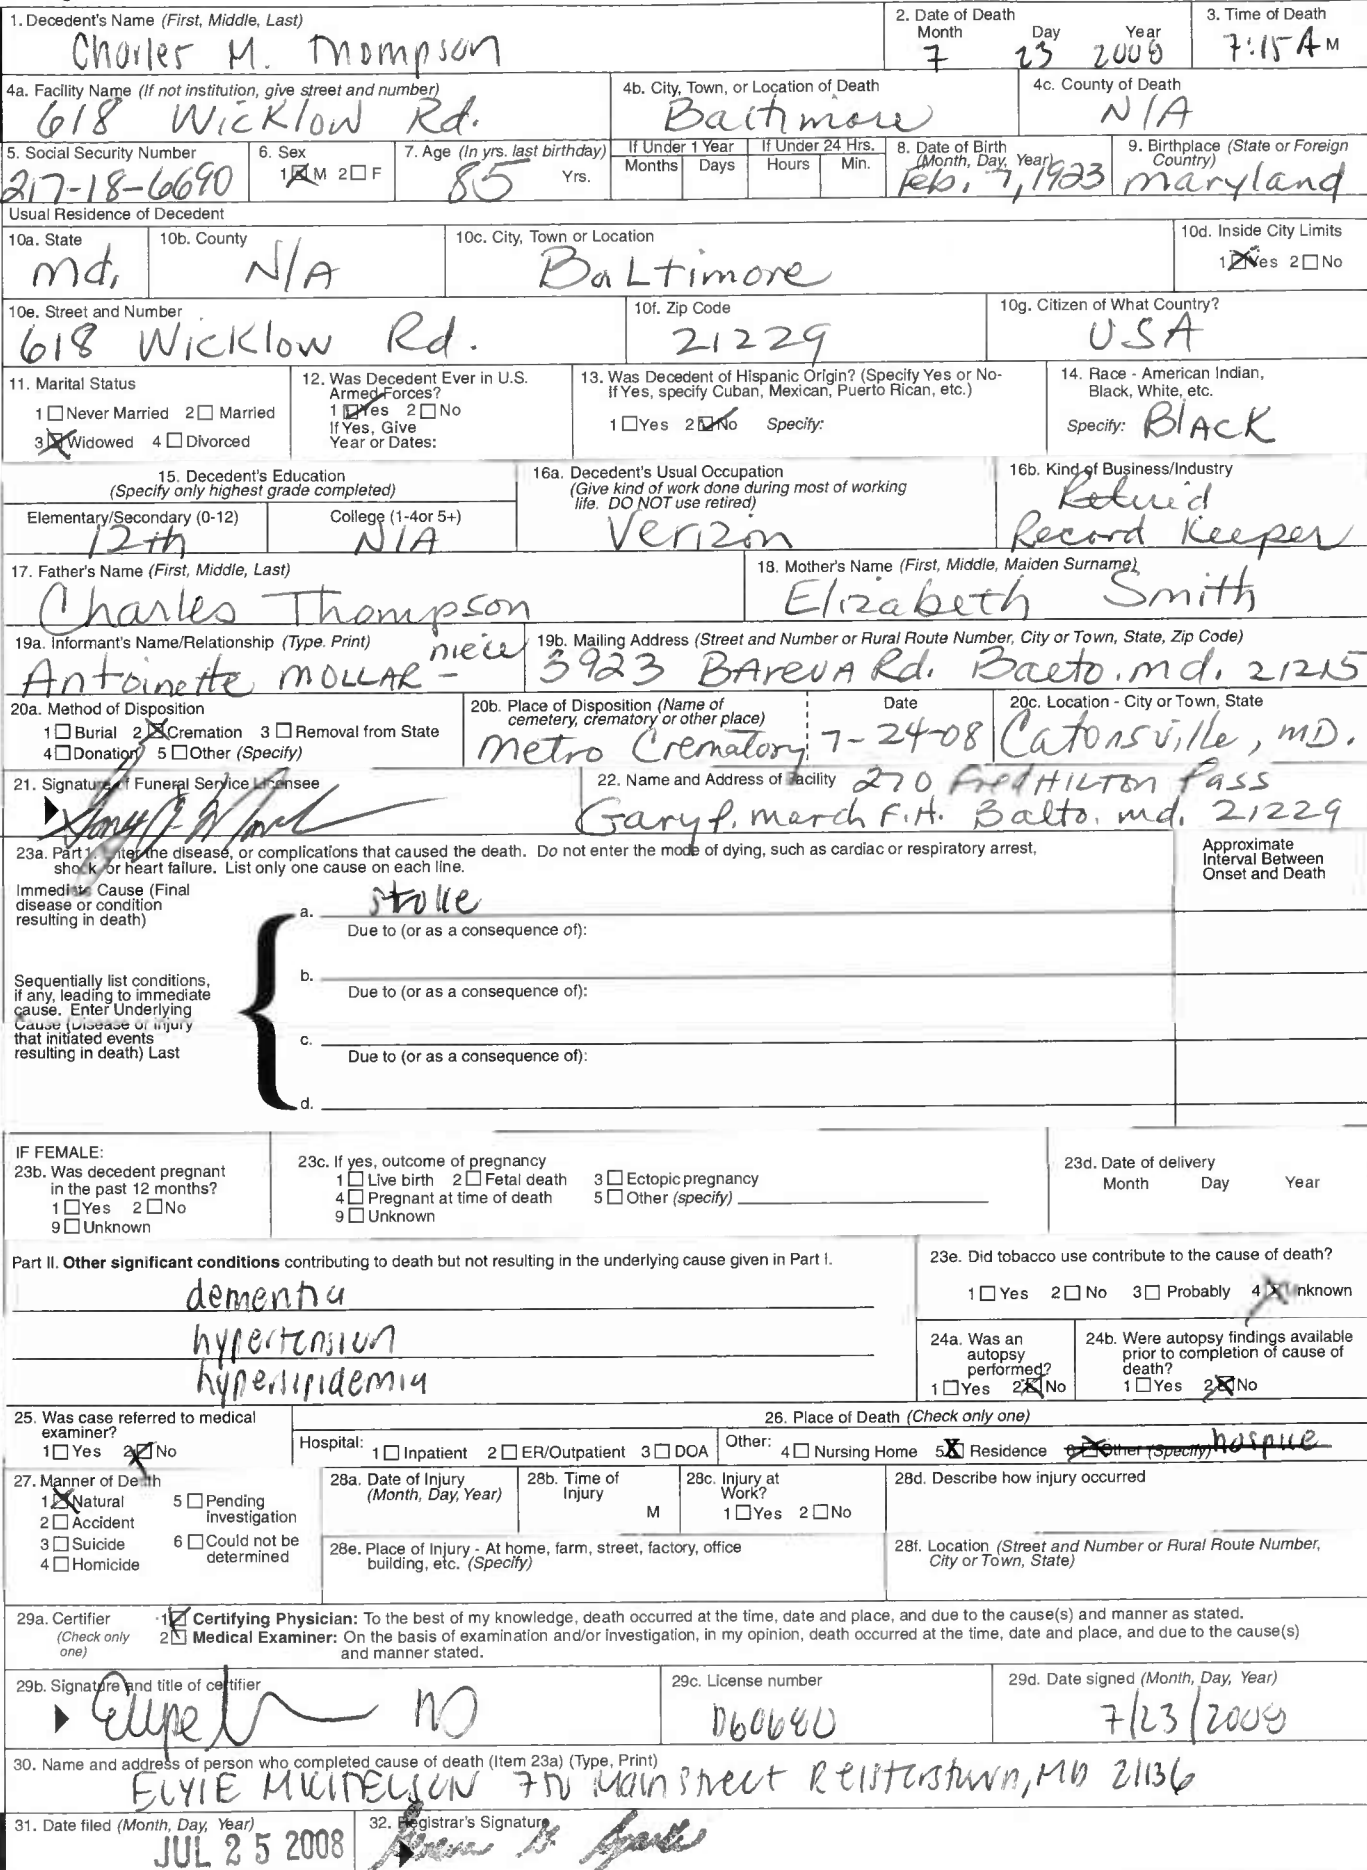 1. Decedent's Name (First, Middle, Last)
Charles M. Thompson
2. Date of Death
Month Day Year
7 23 2008
3. Time of Death
7:15 A M
4a. Facility Name (If not institution, give street and number)
618 Wicklow Rd.
4b. City, Town, or Location of Death
Baltimore
4c. County of Death
N/A
5. Social Security Number
217-18-6690
6. Sex
1☒M 2☐F
7. Age (In yrs. last birthday)
85 Yrs.
If Under 1 Year
Months Days
If Under 24 Hrs.
Hours Min.
8. Date of Birth
(Month, Day, Year)
Feb. 7, 1923
9. Birthplace (State or Foreign
Country)
Maryland
Usual Residence of Decedent
10a. State
Md.
10b. County
N/A
10c. City, Town or Location
BaLtimore
10d. Inside City Limits
1☒Yes 2☐No
10e. Street and Number
618 Wicklow Rd.
10f. Zip Code
21229
10g. Citizen of What Country?
USA
11. Marital Status
1☐Never Married 2☐Married
3☒Widowed 4☐Divorced
12. Was Decedent Ever in U.S.
Armed Forces?
1☒Yes 2☐No
If Yes, Give
Year or Dates:
13. Was Decedent of Hispanic Origin? (Specify Yes or No-
If Yes, specify Cuban, Mexican, Puerto Rican, etc.)
1☐Yes 2☒No Specify:
14. Race - American Indian,
Black, White, etc.
Specify: BlACK
15. Decedent's Education
(Specify only highest grade completed)
Elementary/Secondary (0-12)
12th
College (1-4or 5+)
N/A
16a. Decedent's Usual Occupation
(Give kind of work done during most of working
life. DO NOT use retired)
Verizon
16b. Kind of Business/Industry
Record Keeper
17. Father's Name (First, Middle, Last)
Charles Thompson
18. Mother's Name (First, Middle, Maiden Surname)
Elizabeth Smith
19a. Informant's Name/Relationship (Type. Print)
Antoinette MOLLAR - niece
19b. Mailing Address (Street and Number or Rural Route Number, City or Town, State, Zip Code)
3923 BArevA Rd. Balto. Md. 21215
20a. Method of Disposition
1☐Burial 2☒Cremation 3☐Removal from State
4☐Donation 5☐Other (Specify)
20b. Place of Disposition (Name of
cemetery, crematory or other place)
Metro Crematory
Date
7-24-08
20c. Location - City or Town, State
Catonsville, MD.
21. Signature of Funeral Service Licensee
22. Name and Address of Facility 270 FredHILTON Pass
Gary P. March F.H. Balto. Md. 21229
23a. Part I. Enter the disease, or complications that caused the death. Do not enter the mode of dying, such as cardiac or respiratory arrest,
shock, or heart failure. List only one cause on each line.
Approximate
Interval Between
Onset and Death
Immediate Cause (Final
disease or condition
resulting in death)
a. stroke
Due to (or as a consequence of):
Sequentially list conditions,
if any, leading to immediate
cause. Enter Underlying
Cause (Disease or injury
that initiated events
resulting in death) Last
b.
Due to (or as a consequence of):
c.
Due to (or as a consequence of):
d.
IF FEMALE:
23b. Was decedent pregnant
in the past 12 months?
1☐Yes 2☐No
9☐Unknown
23c. If yes, outcome of pregnancy
1☐Live birth 2☐Fetal death 3☐Ectopic pregnancy
4☐Pregnant at time of death 5☐Other (specify)
9☐Unknown
23d. Date of delivery
Month Day Year
Part II. Other significant conditions contributing to death but not resulting in the underlying cause given in Part I.
dementia
hypertension
hyperlipidemia
23e. Did tobacco use contribute to the cause of death?
1☐Yes 2☐No 3☐Probably 4☒Unknown
24a. Was an
autopsy
performed?
1☐Yes 2☒No
24b. Were autopsy findings available
prior to completion of cause of
death?
1☐Yes 2☒No
25. Was case referred to medical
examiner?
1☐Yes 2☒No
26. Place of Death (Check only one)
Hospital: 1☐Inpatient 2☐ER/Outpatient 3☐DOA
Other: 4☐Nursing Home 5☒Residence 6☒Other (Specify) hospice
27. Manner of Death
1☒Natural 5☐Pending
investigation
2☐Accident
3☐Suicide 6☐Could not be
determined
4☐Homicide
28a. Date of Injury
(Month, Day, Year)
28b. Time of
Injury
M
28c. Injury at
Work?
1☐Yes 2☐No
28d. Describe how injury occurred
28e. Place of Injury - At home, farm, street, factory, office
building, etc. (Specify)
28f. Location (Street and Number or Rural Route Number,
City or Town, State)
29a. Certifier
(Check only
one)
1☒Certifying Physician: To the best of my knowledge, death occurred at the time, date and place, and due to the cause(s) and manner as stated.
2☐Medical Examiner: On the basis of examination and/or investigation, in my opinion, death occurred at the time, date and place, and due to the cause(s)
and manner stated.
29b. Signature and title of certifier
29c. License number
D60680
29d. Date signed (Month, Day, Year)
7/23/2008
30. Name and address of person who completed cause of death (Item 23a) (Type, Print)
Main Street Reisterstown, MD 21136
31. Date filed (Month, Day, Year)
JUL 25 2008
32. Registrar's Signature